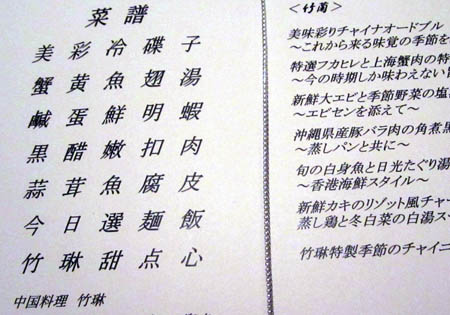 菜譜
美彩冷碟子
蟹黄魚翅湯
鹹蛋鮮明蝦
黒醋嫩扣肉
蒜茸魚腐皮
今日選麵飯
竹琳甜点心
中国料理 竹琳
＜竹蘭
美味彩りチャイナオードブル
～これから来る味覚の季節を
特選フカヒレと上海蟹肉の特
～今の時期しか味わえない
新鮮大エビと季節野菜の塩
～エビセンを添えて～
沖縄県産豚バラ肉の角煮黒
～蒸しパンと共に～
旬の白身魚と日光たぐり湯
～香港海鮮スタイル～
新鮮カキのリゾット風チャー
蒸し鶏と冬白菜の白湯ス
竹琳特製季節のチャイニ